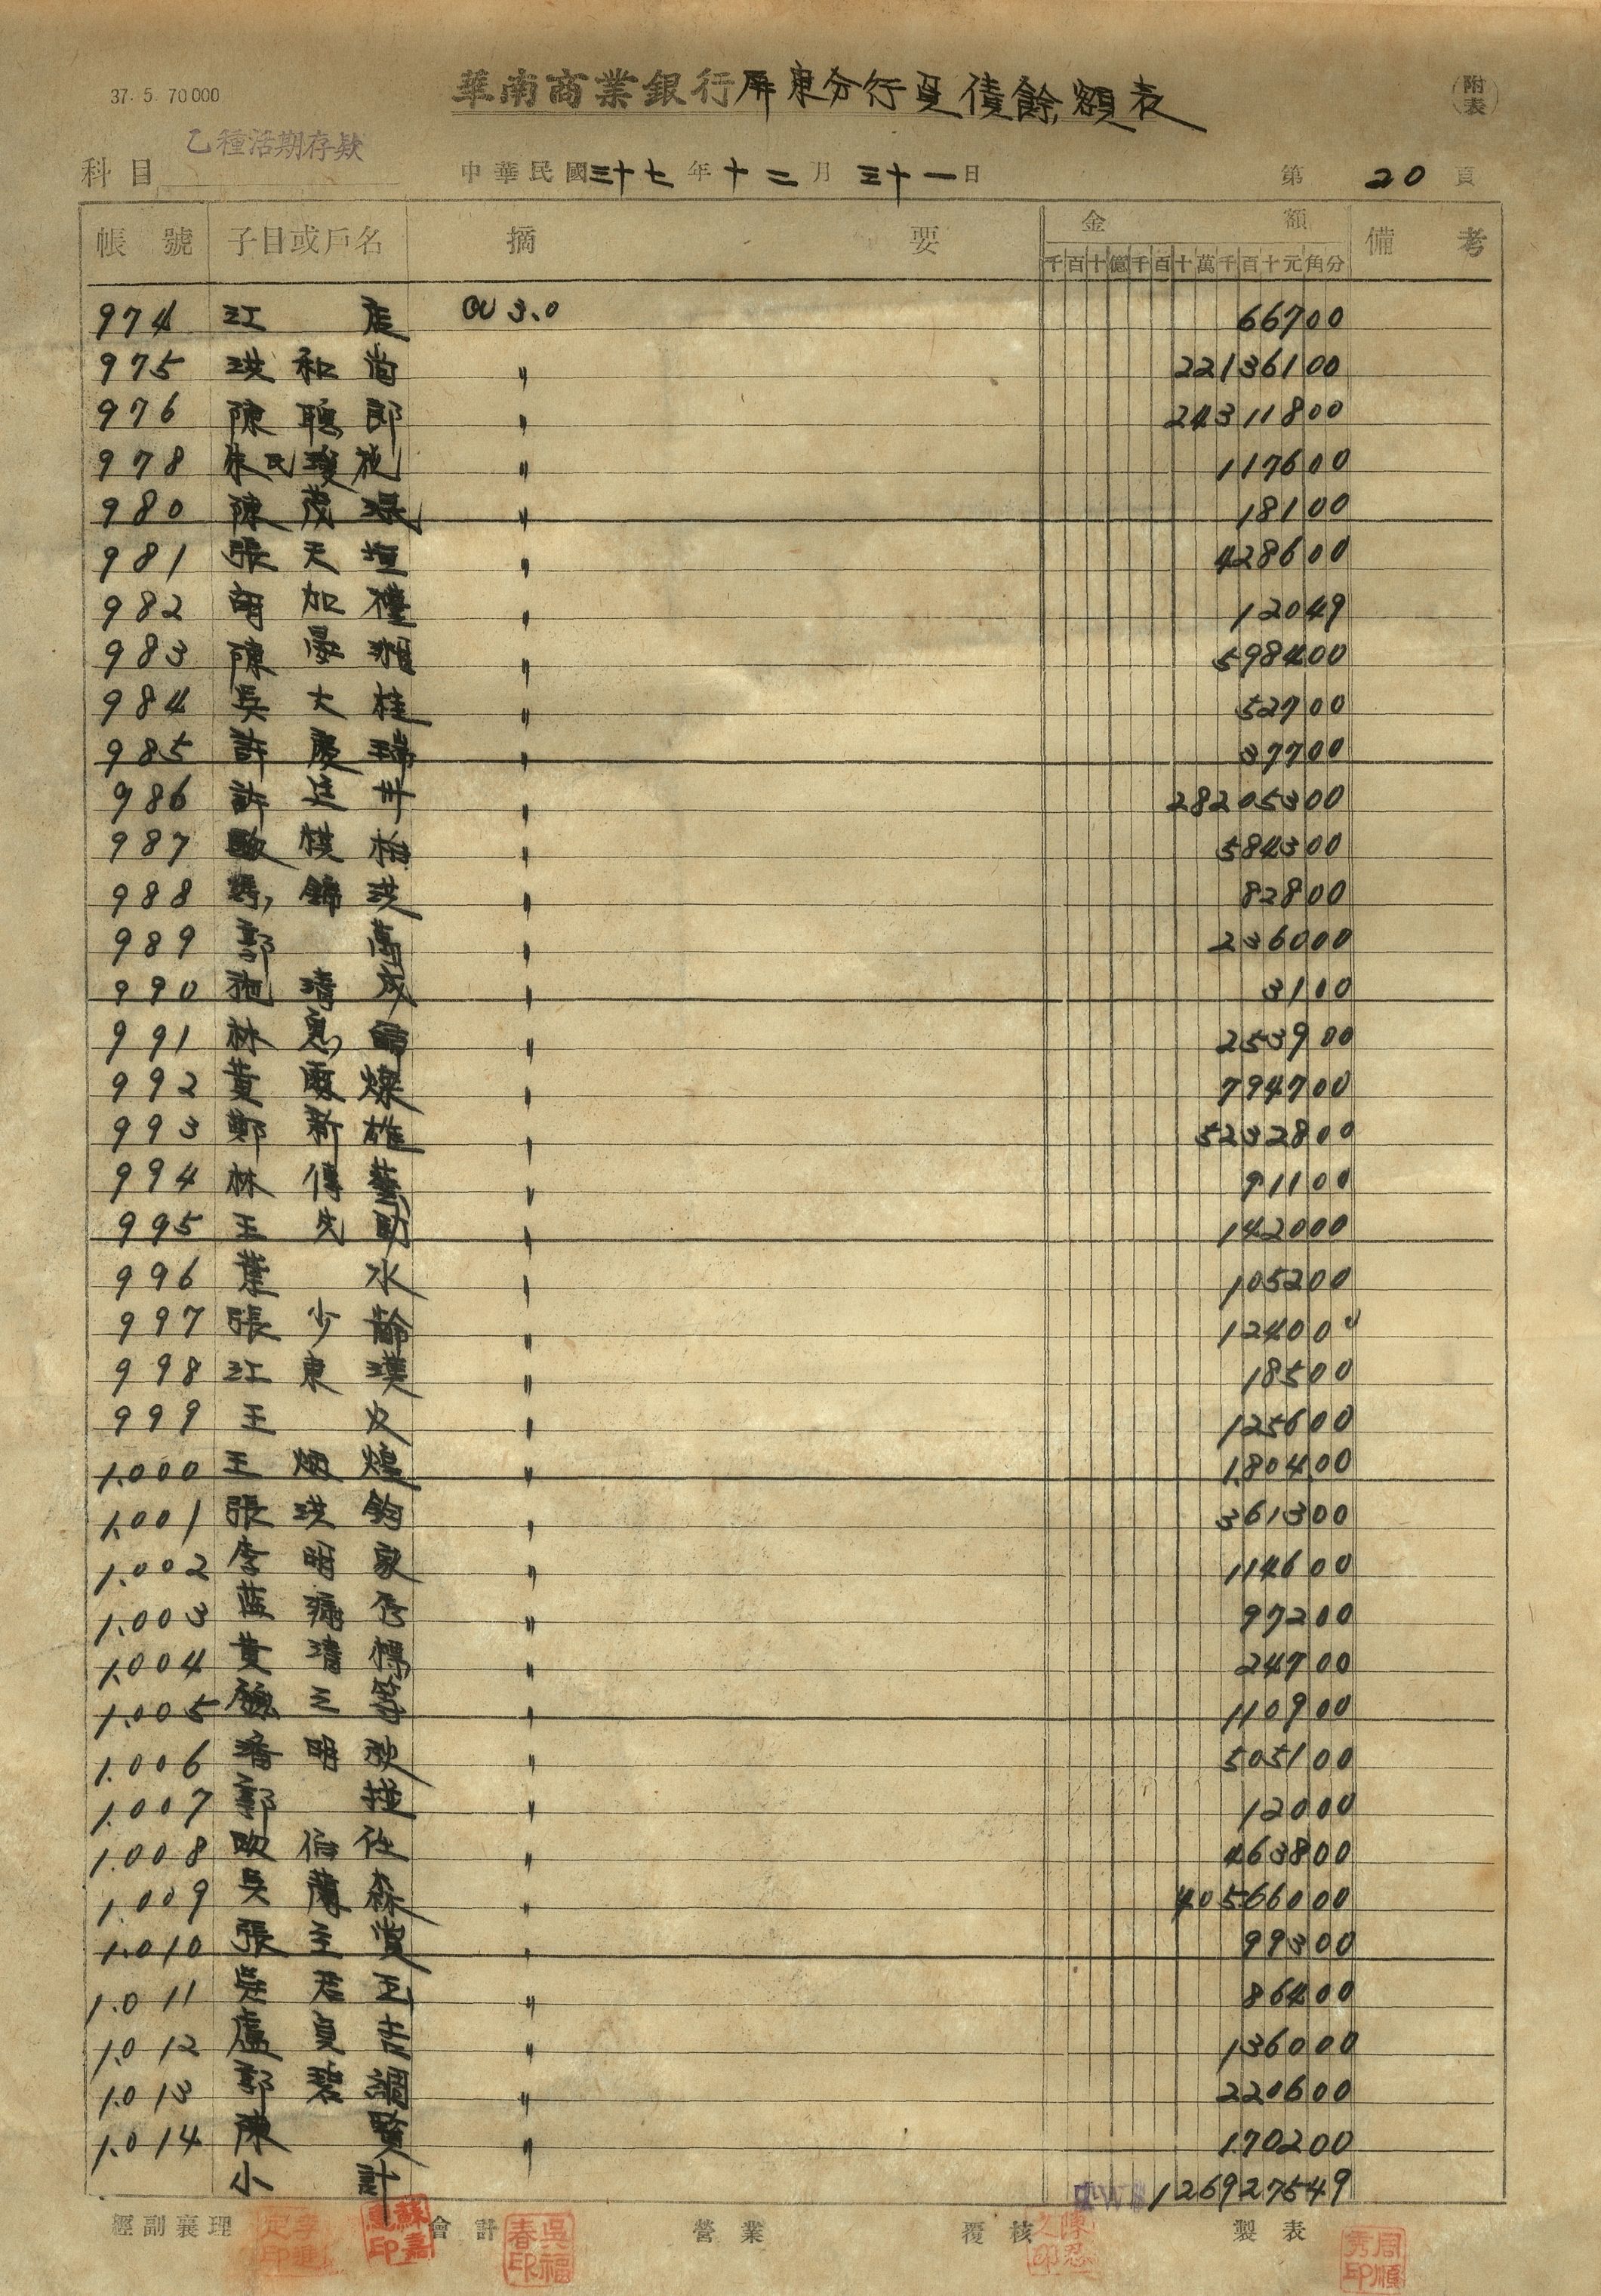 37. 5. 70000
華南商業銀行屏東分行負債餘額表
(附表)
科目 乙種活期存款
中華民國三十七年十二月三十一日
第 20 頁
帳號 子目或戶名 摘要 金額 備考
千百十億千百十萬千百十元角分
974 江 OW 3.0 66700
975 洪和尚 〃 22136100
976 陳聰郎 〃 24311800
978 朱氏 〃 117600
980 陳茂 〃 18100
981 張天 〃 428600
982 胡加 〃 12049
983 陳 〃 598400
984 吳大桂 〃 52700
985 許慶瑞 〃 37700
986 許廷 〃 28205300
987 歐 〃 584300
988 錦洪 〃 82800
989 郭萬 〃 236000
990 施清成 〃 3100
991 林 〃 253900
992 黃 燦 〃 794700
993 鄭新雄 〃 5232800
994 林傳 〃 91100
995 王先助 〃 142000
996 葉水 〃 105200
997 張少齡 〃 124000
998 江東漢 〃 18500
999 王 〃 125600
1.000 王炳煌 〃 180400
1.001 張洪鈞 〃 361300
1.002 李明家 〃 114600
1.003 藍 〃 97200
1.004 黃清標 〃 24700
1.005 顏三等 〃 110900
1.006 潘明 〃 505100
1.007 郭 〃 12000
1.008 伯 〃 463800
1.009 吳蘭森 〃 40566000
1.010 張 賞 〃 99300
1.011 吳 〃 86400
1.012 盧貞吉 〃 136000
1.013 郭碧綢 〃 220600
1.014 陳賢 〃 170200
小計 126927549
經副襄理 會計 營業 覆核 製表
蘇嘉惠印
吳福春印
周順秀印